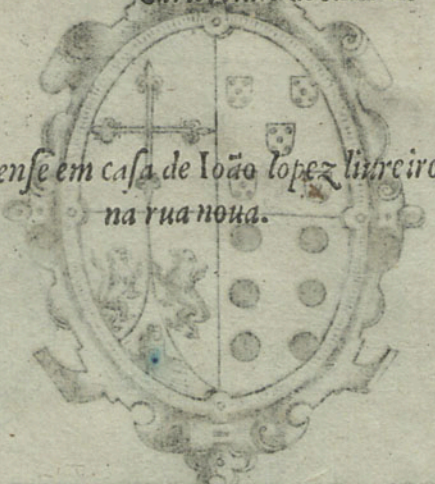 enſe em caſa de Ioão lopez liureiro
na rua noua.